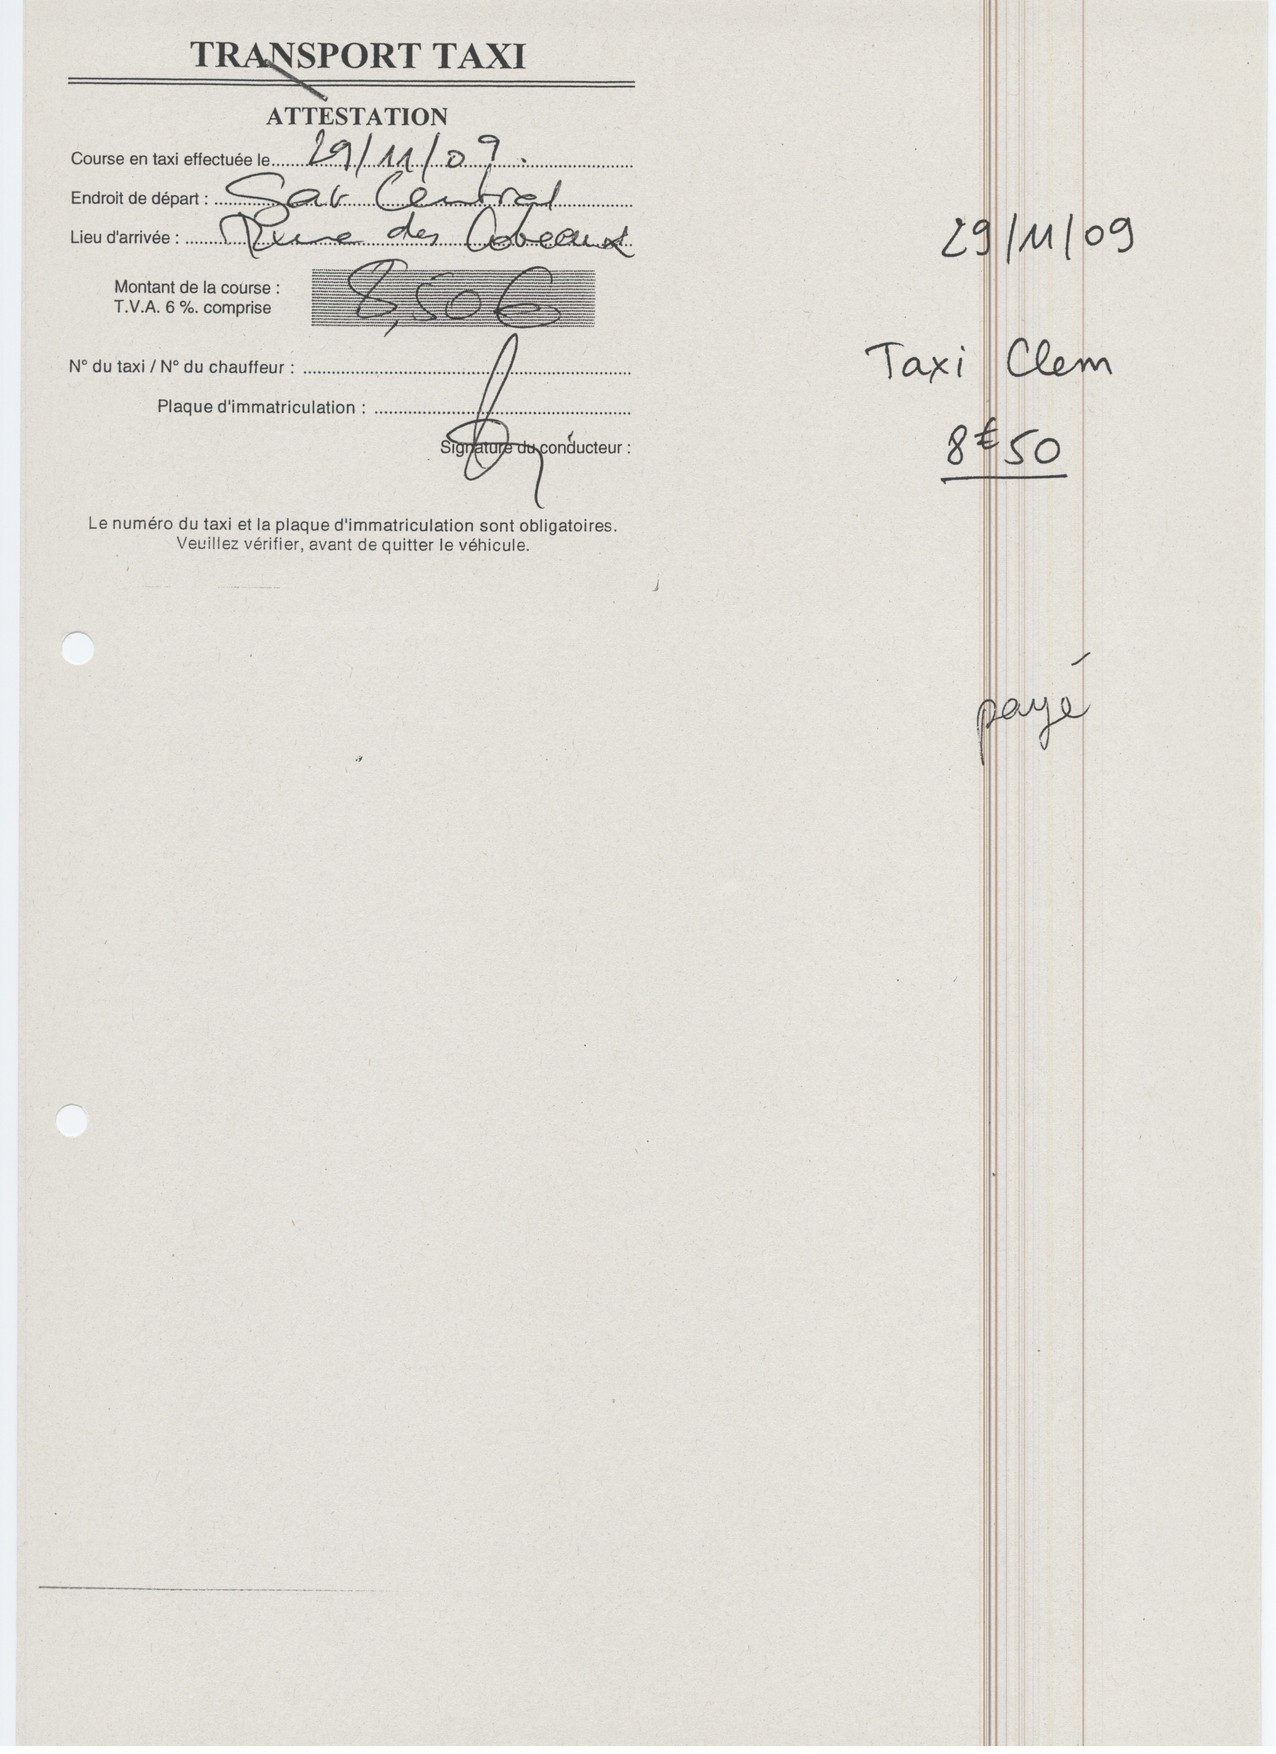 TRANSPORT TAXI
ATTESTATION
Course en taxi effectuée le 29/11/09
Endroit de départ : Central
Lieu d'arrivée : des
Montant de la course :
T.V.A. 6 %. comprise
8,50€
N° du taxi / N° du chauffeur :
Plaque d'immatriculation :
Signature du conducteur :
Le numéro du taxi et la plaque d'immatriculation sont obligatoires.
Veuillez vérifier, avant de quitter le véhicule.
29/11/09
Taxi Clem
8€50
payé